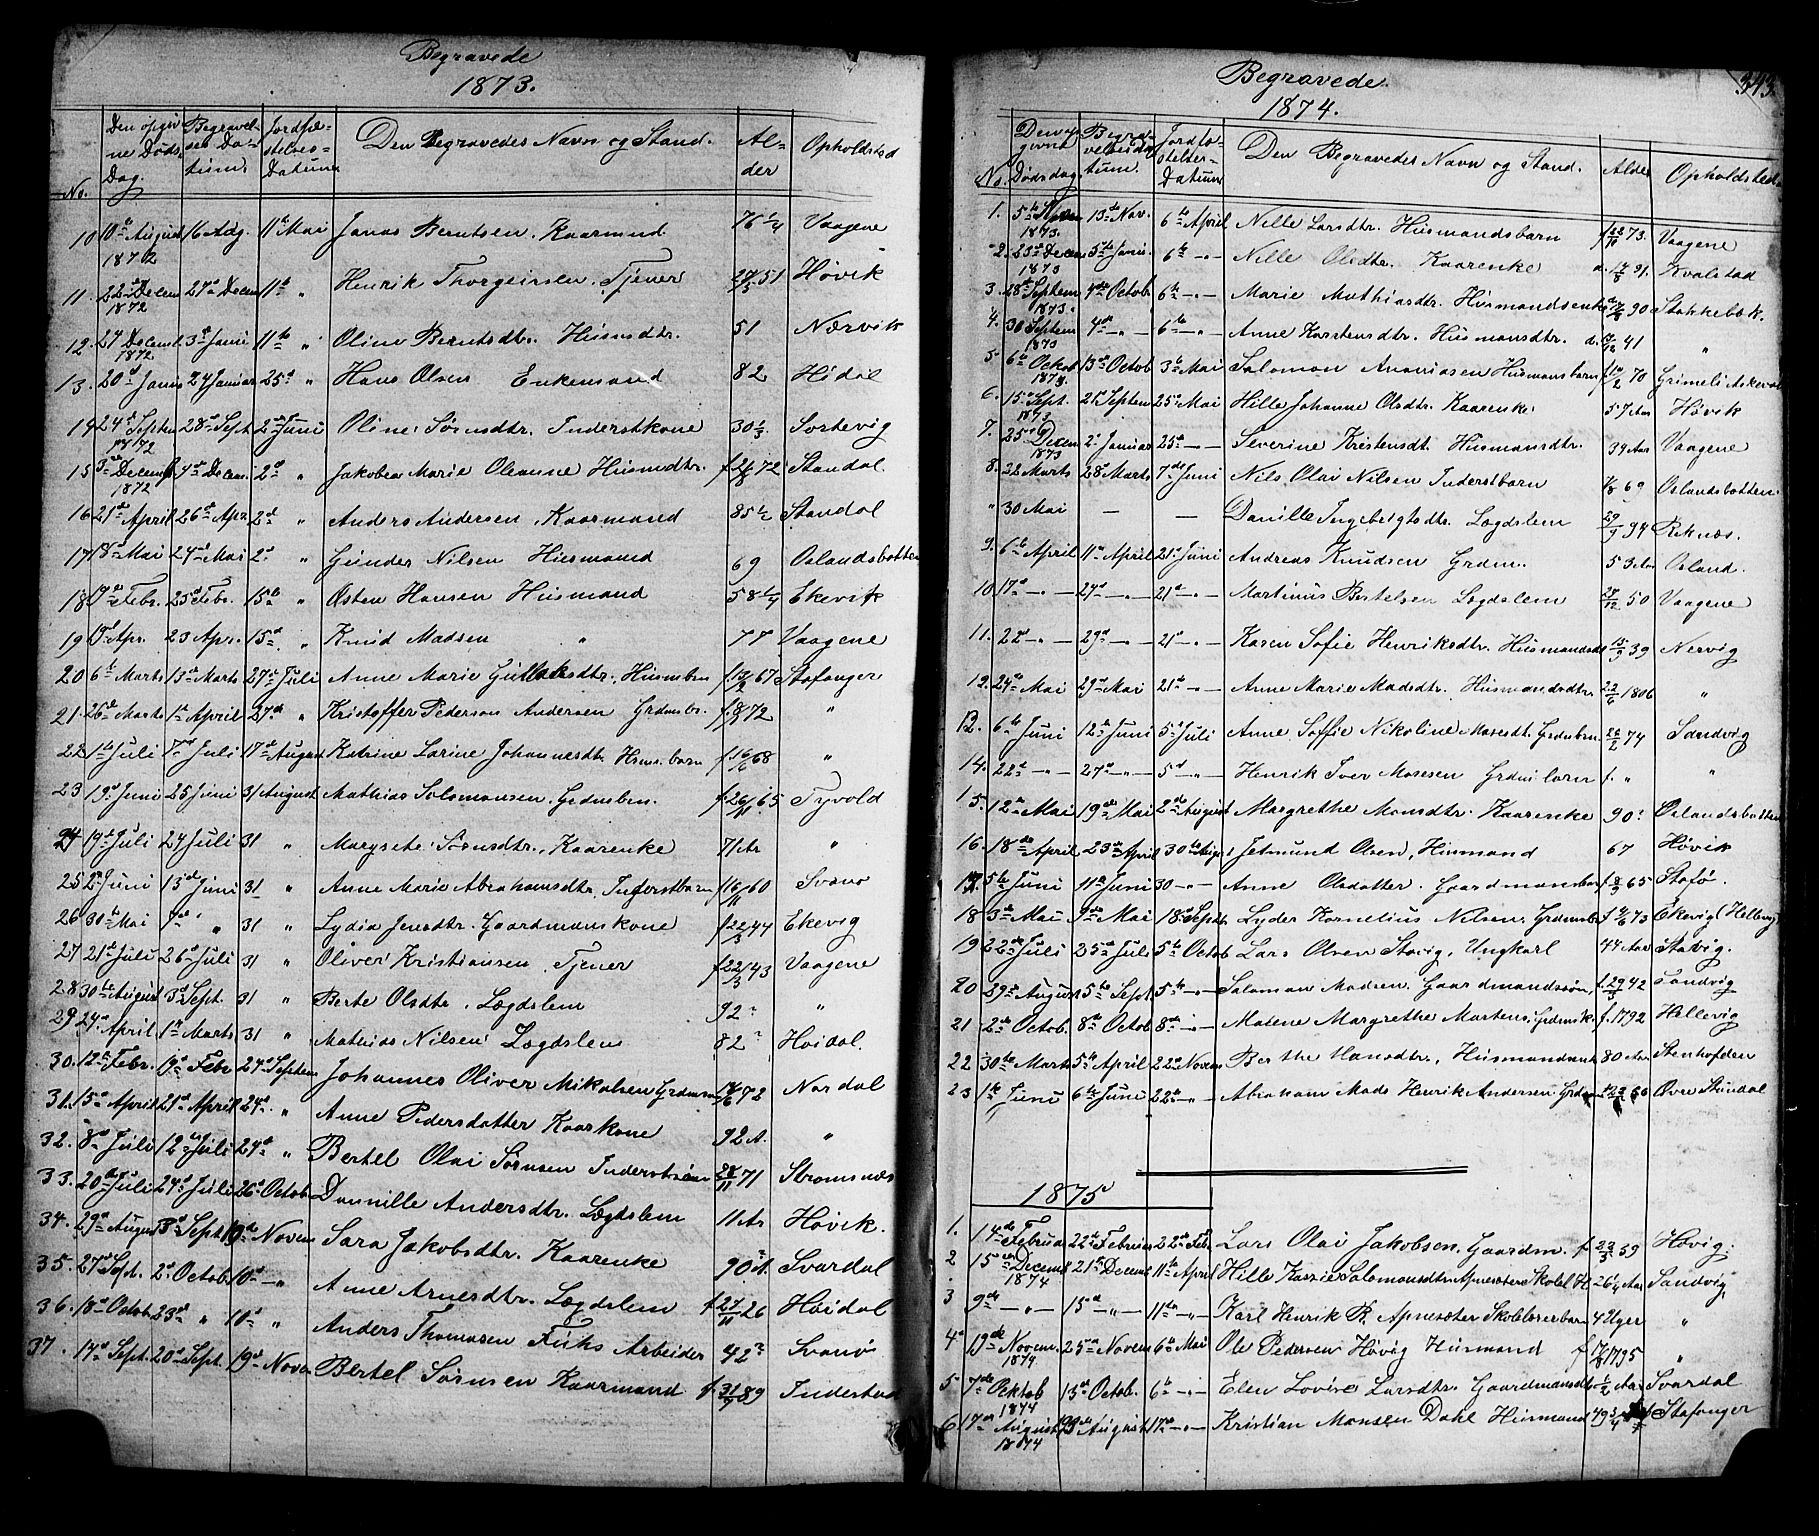 Begravede
1873.
No. Den opgivne Døds Dag. Begravelses Datum. Jordfæstelses Datum Den Begravedes Navn og Stand. Alder Opholdsted
10 10de August 1872 16 Aug. 11te Mai Jonas Berntsen. Kaarmand 76 1/4 Vaagene
11. 22de Decem 1872 27de Decem 11te " Henrik Thorgeirsen. Tjener 51 Høvik
12. 27 Decem 1872. 3de Janu 11te " Oline Berntsdtr. Husmdtr. 51 Nærvik
13. 20de Janu 24 Januar 25de " Hans Olsen Enkemand 82 Hødal
14 24de Septem 1872 28de Sept 2den Juni Oline Sørensdtr. Inderstkone 30 1/3 Sortevig
15 Decem 1872 4de Decem. 2de " Jakobea Marie Oleanne Husmdtr. 72 Standal
16 21de April 26de Apr. 2de " Anders Andersen Kaarmand 85 1/2 Standal
17 18de Mai 24de Mai 2de " Gunder Nilsen Husmand 69 Oslandsbotten
18 17de Febr. 25de Febr. 15de " Østen Hansen Husmand 58 1/4 Ekevik
19 Apr. 23 Apr. 15de " Knud Madsen " 77 Vaagene
20 6te Marts 13de Marts 27de Juli Anne Marie Husmbrn f 67 Stafanger
21. 26de Marts 1ste April 27de " Kristoffer Pederson Andersen Grdmbr. f. 72 "
22 1ste Juli 7de Juli 17de August Katrine Larine Johannesdtr Husm. barn f. 16/6 68 "
23 19de Juni 25 Juni 31 August Mathias Solomonsen. Grdmbrn. f. 26/11 65 Tyvold
24 19de Juli 24 Juli 31 " Sørnsdtr., Kaarenke 71 Ar "
25 Juni 13de Juni 31 " Anne Marie Abrahamsdtr. Inderstbarn f 16/11 60 Svanø
26 30te Mai 7de " 31 " Lydia Jensdtr. Gaardmanskone f 22/3 44 Ekevig
27 21de Juli 26de Juli 31 " Oliver Kristiansen. Tjener f 22/3 43 Vaagene
28 30te August 3de Sept. 31 " Berte Olsdtr. Lægdslem 92 "
29 24de April 1ste Marts 31 " Mathias Nilsen Lægdslem 82 Høidal.
30. 12te Febr. 19de Febr 24de Septem Johannes Oliver Mikalsen Grdmson 72 Nordal
31. 15de April 21de April 24de " Anne Pedersdatter Kaarkone 92 A. "
32. 8de Juli 12te Juli 24de " Bertel Olai Sørnsen Inderstsøn 28/11 71 Stromsnæs
33. 20de Juli 24de Juli 26de Octob Dannille Andersdtr. Lægdslem 11 Ar Høvik.
34. 29de August 3de Sept 19de Novem Sara Jakobsdtr. Kaarenke 90 Svardal
35. 27 Sept. 2de Octob 10de " Anne Arnesdtr. Lægdslem f 27/11 26 Høidal
36. 18de Octob 23de " 10de " Anders Thomasen Fuhs Arbeider 42 Svanø
37. 14de Sept. 20de Sept. 19de Novem Bertel Sørnsen Kaarmand f 31/9 89 Indestad
Begravede.
1874.
343.
No. Den opgivne Dødsdag. Begravelsesdatum. Jordfæstelses Datum Den Begravedes Navn og Stand. Alder Opholdsted
1. 5te Nov 1873. 13de Nov. 6te April Nille Larsdtr. Husmandsbarn f 73. Vaagene
2. 23de Decem 1873 5te Janu. 6te " Nille Olsdtr. Kaarenke 91. Kvalstad
3. 28de Septem 1873. 4de Octob 6te " Marie Mathiasdtr. Husmandsenke 90 Stokkebæk.
4. 30 Septem 1873 4de " 6te " Anne Karstensdtr. Husmansdtr. 41 "
5 6te Octob 1873. 13de Octob 3de Mai Salomon Ananiasen Husmansbarn f 70 Grimeli Askevold
6. 15de Sept. 1873 21de Septem 25de Mai Hille Johanne Olsdtr. Kaarenke 57 Aar Høvik
7. 25de Decem 1873 2. Januar 25de " Severine Kristensdt. Husmansdtr. 34 Aar Vaagene
8. 22 Marts 28 Marts 7de Juni Nils Olai Nilsen Inderstbarn 69 Oslandsbotten
" 30 Mai — — Danille Ingebrigtsdtr. Lægdslem 29/9 94 Reknæs.
9. 6te April 11te April 21de Juni Andreas Knudsen Grdm. 53 Aar Osland.
10 17de " 24de " 21de " Martinus Bertelsen Lægdslem 50 Vaagene
11. 22de " 29de " 21de " Karen Sofie Henriksdtr. Husmandsdtr 39 Nervig
12. 24de Mai 29de Mai 21de " Anne Marie Madsdtr. Husmandsdtr. 22/6 1806 "
13. 6te Juni 12te Juni 5te Juli Anne Soffie Nikoline Mosesdt. Grdmbrn 74 Sandvig
14. 22de " 27de " 5te " Henrik Iver Mosesen Grdmbarn f. " "
15. 12te Mai 19de Mai 2den August Margrethe Monsdtr. Kaarenke 90 Oslandsbotten
16. 18de April 23de April 30te August Jetmund Olsen, Husmand 67 Høvik
17. 5te Juni 11te Juni 30 " Anne Olsdatter. Gaardmansbarn f 65 Stafø.
18 3de Mai 9de Mai 18de Septb Lyder Kornelius Nilsen. Grdmsbr f 73 Ekevig (Hellevig)
19 22de Juli 25de Juli 5te Octob Lars Olsen Stavig, Ungkarl 44 Aar Stavig.
20 29de August 5te Sept. 5te " Salaman Madsen. Gaardmandssøn, f. 29/3 42 Sandvig
21 2de Octob. 8de Octob 8de " Malene Margrethe Martens. Grdmsk. f. 1792 Hellevig
22 30te Marts 5te April 22de Novem Berthe Hansdtr., Husmandsenk 80 Aar Stenhofden
23 1ste Juni 6te Juni 22de " Abraham Mads Henrik Andersen. Grdm 66 Øvre Standal
1875
1. 17de Februar 22de Februar 22de Feb. Lars Olai Jakobsen. Gaardm. f 22/3 39 Høvig.
2 15de Decemb 1874 21de Decem 11te April Hille Salomonsdtr Apnesæter Skolel. K. 26 1/4 Aar Sandvig,
3 9de " 15de " 11te " Karl Henrik R. Apnesæter Skolelærerbarn 4 Uger "
4 19de Novem. 1874 25de Novem 6te Mai Ole Pedersen Høvig Husmand f 17/8 1795 "
5 7de Oktob 1874 13de Octob. 6te " Elen Lovise Larsdtr. Gaardmansdtr 1/2 Aar Svardal
6 17de August 1874 23de August 17de " Kristian Monsen Dahl Husmand 49 3/4 Stafanger